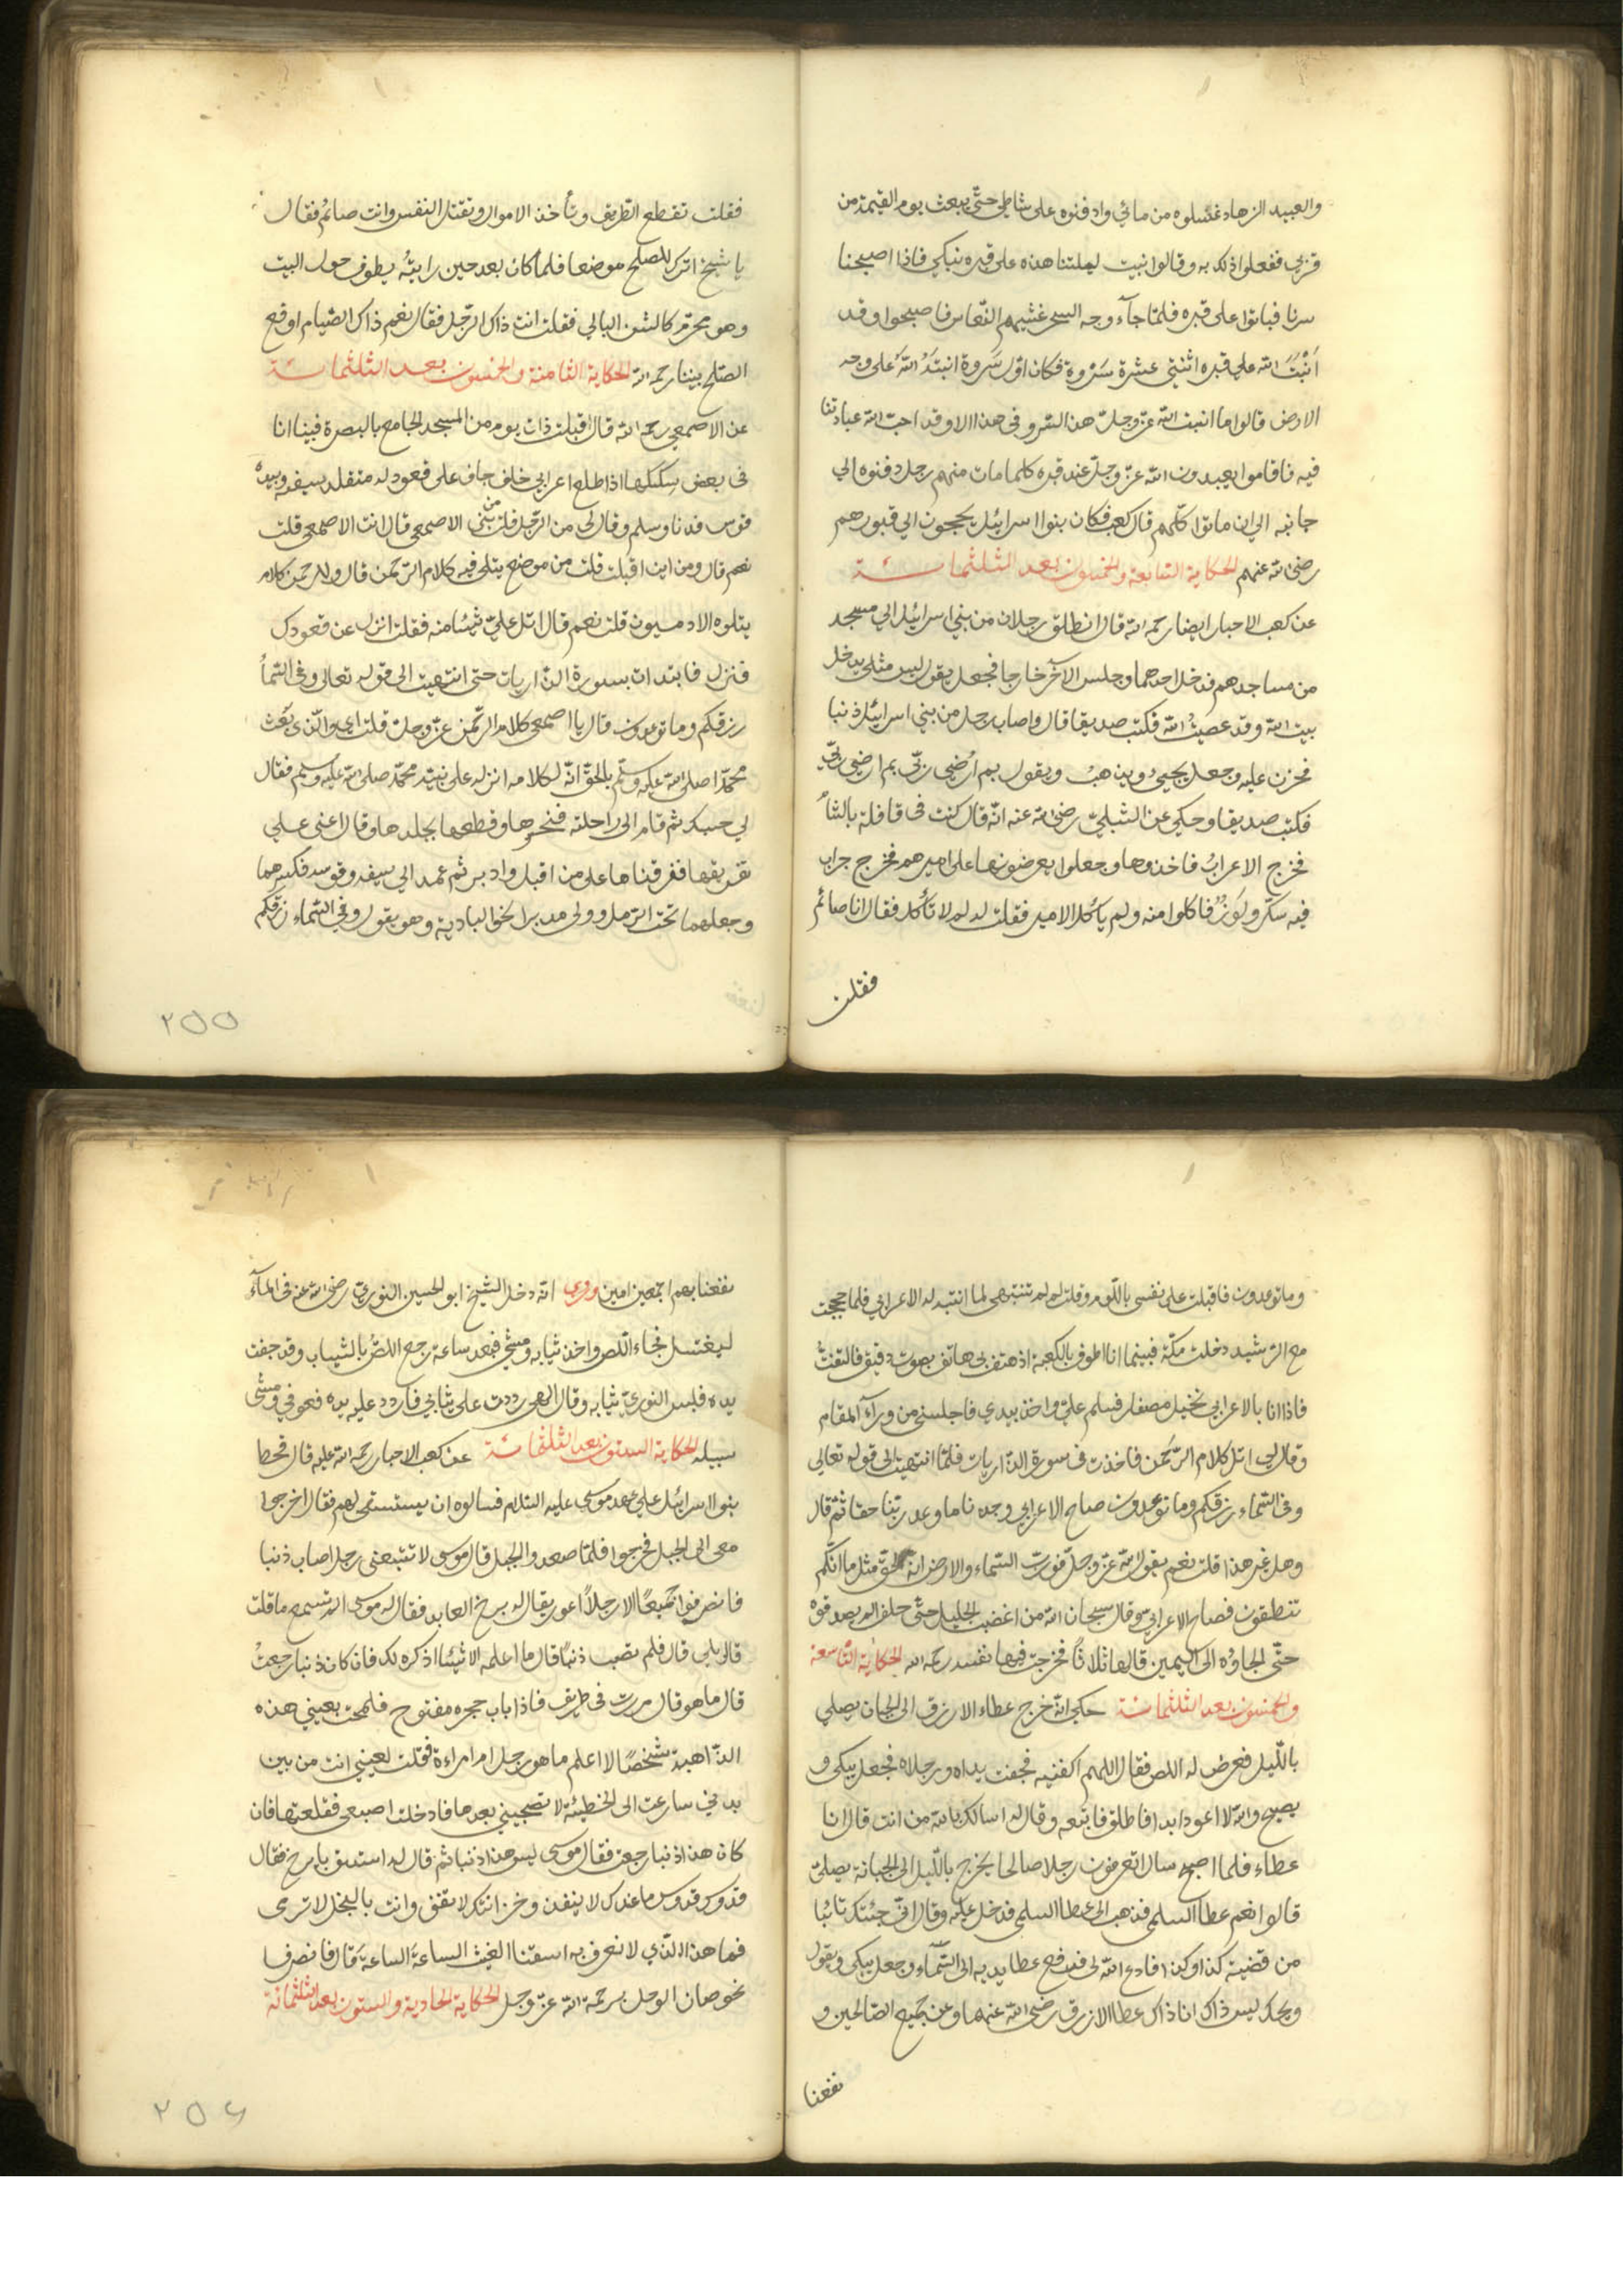 والعبيد الزهاد غسلوه من مائي وادفنوه على شاطي حتى يبعث يوم القيمة من
قربي ففعلوا ذلك به وقالوا نبيت ليلتنا هذه على قبره نبكي فاذا اصبحنا
سرنا فباتوا على قبره فلما جآء وجه السحر غشيهم النعاس فاصبحوا وقد
اَنْبَتَ الله على قبره اثنتى عشرة سَرْوة فكان اوّل سَروة انبتَهَ اللّه على وجه
الارض قالوا ما انبت الله عزّ وجلّ هذا السّرو في هذا الا وقد احبّ الله عبادتنا
فيه فاقاموا يعبدون الله عزّ وجلّ عند قبره كلما مات منهم رجل دفنوه الي
جانبه الي ان ماتوا كلّهم قال كعب فكان بنوا اسرائيل يحجون الي قبورهم
رضى الله عنهم الحكاية السابعة والخمسون بعد الثلثمائة
عن كعب الاحبار ايضا رحمه الله قال انطلق رجلان من بني اسرائيل الي مسجد
من مساجدهم فدخل احدهما وجلس الآخر خارجا فجعل يقول ليس مثلي يدخل
بيت الله وقد عصيتُ الله فكتب صديقا قال واصاب رجل من بني اسرائيل ذنبا
فحزن عليه وجعل يجيىُٔ ويذهبُ ويقول بم اُرضى ربّى بم ارضى ربّى
فكتب صديقا وحكي عن الشبليّ رضى الله عنه انّه قال كنت فى قافلة بالشاْم
فخرج الاعرابُ فاخذوها وجعلوا يعرضونها على اميرهم فخرج جراب
فيه سكّر ولَوزٌ فاكلوا منه ولم ياكُل الامير فقلت له لم لا تأكُل فقال انا صائم
فقلت
فقلت تقطع الطريق وتأخذ الاموال وتقتل النفس وانت صائم فقال
يا شيخ اترك للصلح موضعا فلما كان بعد حين رايتُه يطوف حول البيت
وهو محرم كالشن البالي فقلت انت ذاك الرّجل فقال نعم ذاك الصّيام اوقع
الصّلح بيننا رحمه الله الحكاية الثامنة والخمسون بعد الثلثمائة
عن الاصمعي رحمه الله قال اقبلت ذات يوم من المسجد الجامع بالبصرة فبينا انا
فى بعض سككها اذا طلع اعرابي خلف جاف على قعود له متقلد بسيفه وبيده
قوس فدنا وسلم وقال لى من الرّجل قلت من بنى الاصمعي قال انت الاصمعى قلت
نعم قال ومن اين اقبلت قلت من موضع يتلى فيه كلام الرّحمن قال وللرحمن كلام
يتلوه الادميون قلت نعم قال اتل علىّ شيئا منه فقلت انزل عن قعودك
فنزل فابتدات بسورة الذّاريات حتى انتهيت الى قوله تعالى وفى السّمأ
رزقكم وما توعدون قال يا اصمعى كلام الرّحمن عزّ وجلّ قلت اى والّذى بَعث
محمّدا صلى الله عليه وسلّم بالحقّ انّه لكلامه انزله على نبيّه محمّد صلى الله عليه وسلم فقال
لي حسبك ثم قام الى راحلته فنحرها وقطعها بجلدها وقال اعنى على
تفريقها ففرقناها على من اقبل وادبر ثم عمد الى سيفه وقوسه فكسرهما
وجعلهما تحت الرّمل وولى مدبرا نحو البادية وهو يقول وفى السّماء رزقكم
٢٥٥
وما توعدون فاقبلت على نفسى باللّوم وقلت لم لم تنتبهى لما انتبه له الاعرابي فلما حججت
مع الرّشيد دخلت مكّة فبينما انا اطوف بالكعبة اذ هتف بى هاتف بصوت دقيق فالتفتّ
فاذا انا بالاعرابى نحيل مصفار فسلم علىّ واخذ بيدي فاجلسنى من ورآء المقام
وقال لى اتل كلام الرّحمن فاخذت فى سورة الذّاريات فلمّا انتهيت الى قوله تعالى
وفى السّماء رزقكم وما توعدون صاح الاعرابي وجدنا ما وعد ربّنا حقا ثمّ قال
وهل غير هذا قلت نعم يقول الله عزّ وجلّ فوربّ السّماء والارض انه لحقّ مثل ما انّكم
تنطقون فصاح الاعرابىّ وقال سبحان الله من اغضب الجليل حتّى حلف الم يصدقوه
حتّى الجاؤه الى اليمين قالها ثلاثاً فخرجت فيها نفسه رحمه الله الحكاية التّاسعة
والخمسون بعد الثلثمائة حكى انّه خرج عطاء الازرق الى الجبان يصلي
باللّيل فعرض له اللص فقال اللهم اكفنيه فجفت يداه ورجلاه فجعل يبكى و
يصيح والله لا اعود ابدا فاطلق فاتبعه وقال له اسالك بالله من انت قال انا
عطاء فلما اصبح سال اتعرفون رجلا صالحا يخرج باللّيل الى الجبانة يصلىّ
قالوا نعم عطا السلمى فذهب الى عطا السلمى فدخل عليه وقال انّى جئتك تائبا
من قضية كذا وكذا فادع الله لى فرفع عطا يديه الى السّماء وجعل يبكى ويقول
ويحك ليس ذاك انا ذاك عطا الازرق رضى الله عنهما وعن جميع الصّالحين و
نفعنا
نفعنا بهم اجمعين امين وروى انّه دخل الشيخ ابو الحسين النوريّ رضى الله عنه فى المآء
ليغتسل فجاء اللص واخذ ثيابه ومشى فبعد ساعة رجع اللصّ بالثياب وقد جفت
يده فلبس النوريّ ثيابه وقال الهى رددت على ثيابي فاردد عليه يده فعوفي ومشى
سبيله الحكاية الستون بعد الثلثمائة عن كعب الاحبار رحمه الله عليه قال قحطا
بنوا اسرائيل على عهد موسى عليه السّلام فسالوه ان يستسقى لهم فقال اخرجوا
معى الى الجبل فخرجوا فلمّا صعد والجبل قال موسى لا تتبعنى رجل اصاب ذنبا
فانصرفوا جميعًا الا رجلاً اعور يقال له برخ العابد فقال له موسى الم تسمع ما قلت
قال بلى قال فلم تصب ذنبًا قال ما اعلمه الا شيئا اذكره لك فان كان ذنبا رجعتُ
قال ما هو قال مررت فى طريق فاذا باب حجره مفتوح فلمحت بعيني هذه
الذّاهبة شخصًا لا اعلم ما هو رجل ام امراءة فقلت لعيني انت من بين
بدني سارعت الى الخطيئة لا تصحبيني بعدها فادخلت اصبعى فقلعتها فان
كان هذا ذنبا رجعت فقال موسى ليس هذا ذنبا ثم قال له استسق يا برخ فقال
قدوس قدوس ما عندك لا ينفد وخزائنك لا تفنى وانت بالبخل لا ترى
فما هذا الذي لا نعرف به اسقنا الغيث الساعةَ الساعةَ قال فانصرفا
نحوضان الوحل برحمة الله عزّ وجل الحكاية الحادية والستون بعد الثلثمائة
٢٥٦